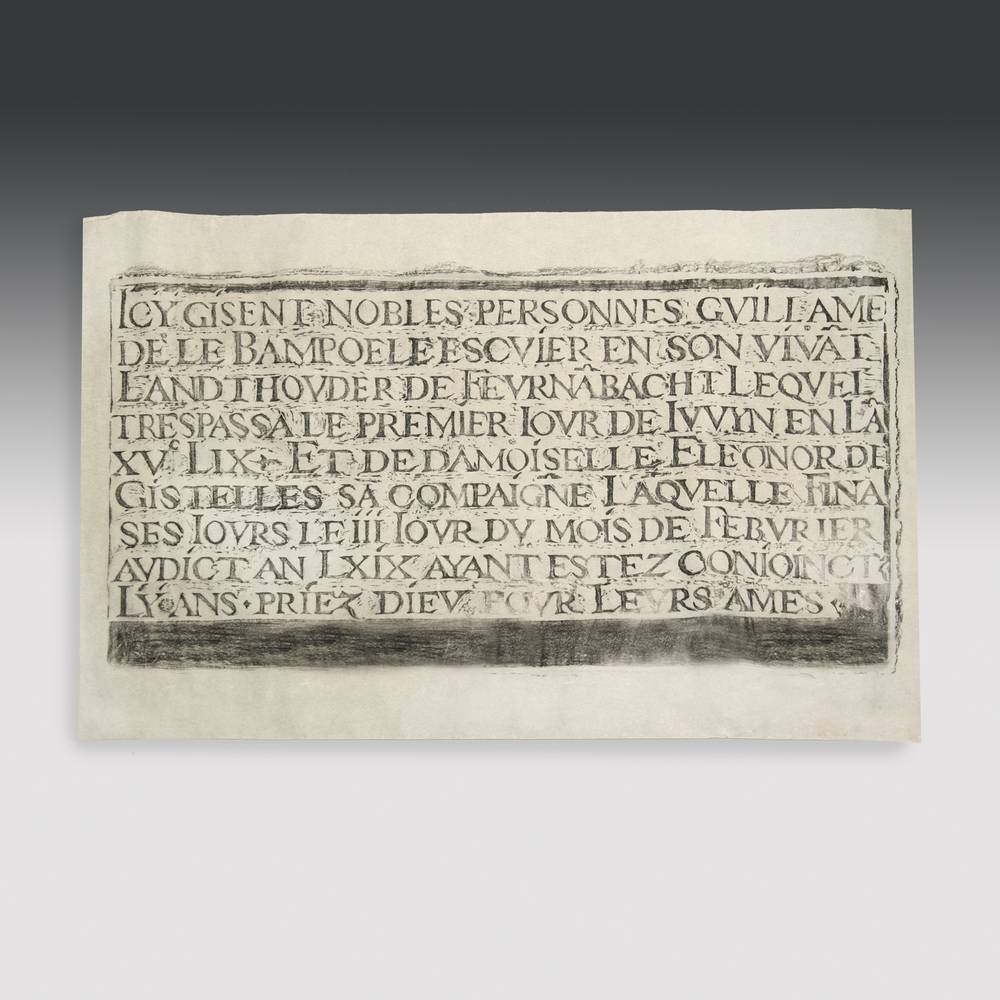 ICY GISENT NOBLES PERSONNES GVILLAME
DE LE BAMPOELE ESCVIER EN SON VIVĀT
LANDTHOVDER DE FEVRNĀBACHT LEQVEL
TRESPASSA LE PREMIER IOVR DE IVVYN EN LA
XVᶜ LIX · ET DE DAMOISELLE ELEONOR DE
GISTELLES SA COMPAIGNE LAQVELLE FINA
SES IOVRS LE III IOVR DV MOIS DE FEBVRIER
AVDICT AN LXIX AYANT ESTEZ CONIOINCT
LV ANS · PRIEZ DIEV POVR LEVRS AMES